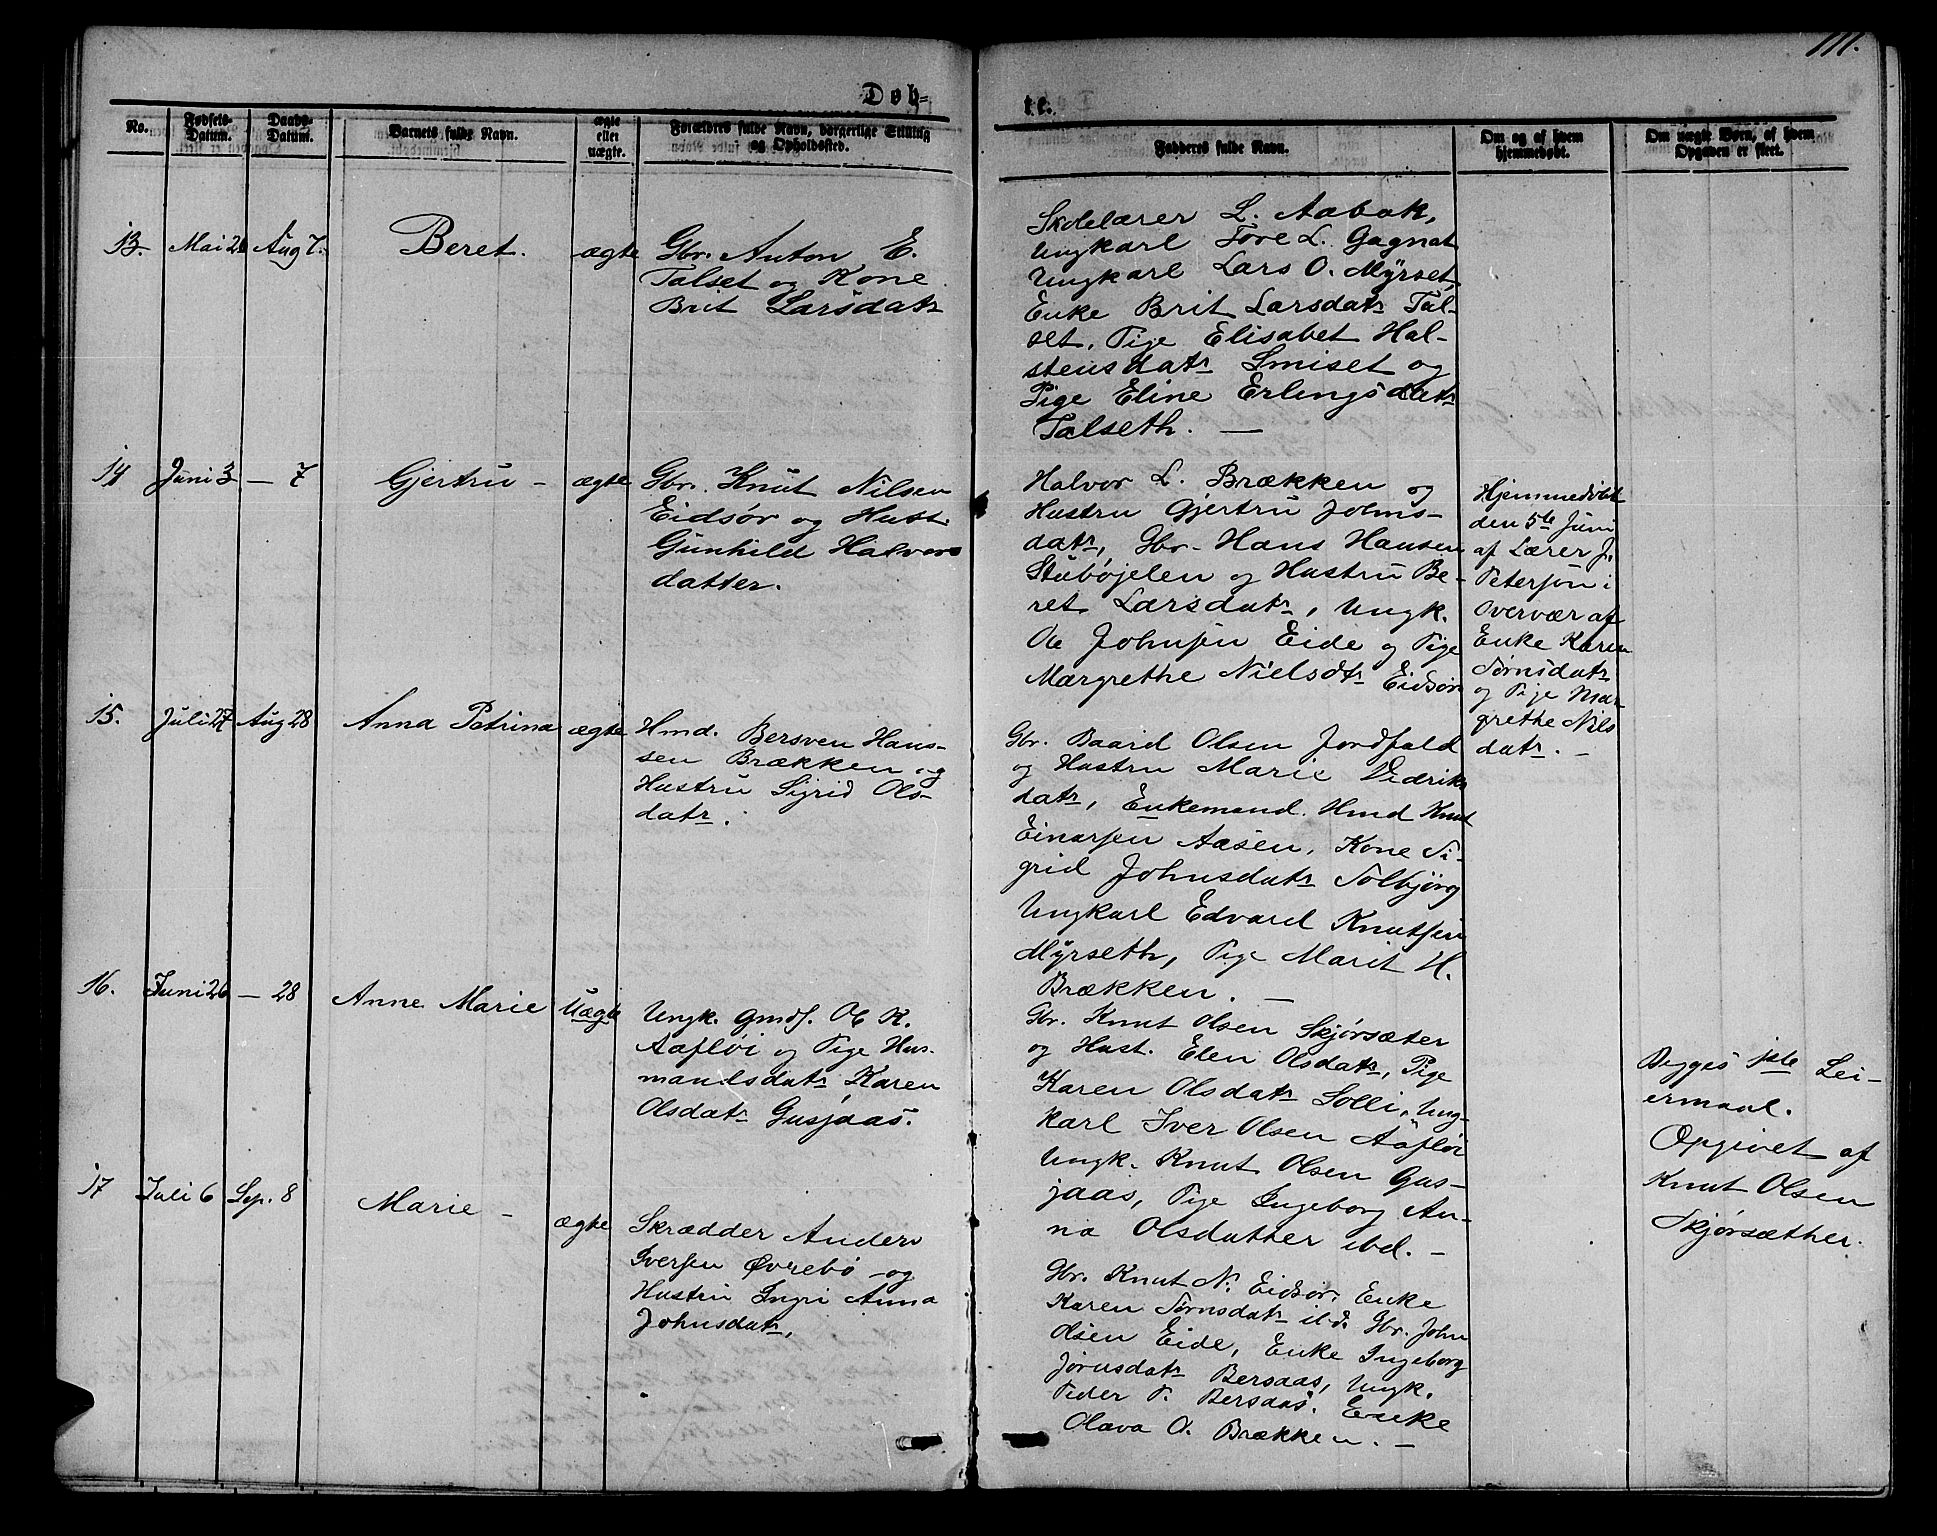 111.
Døb-
te.
No.
Fødsels-
Datum.
Daabs-
Datum.
Barnets fulde Navn.
ægte
eller
uægte.
Forældres fulde Navn, borgerlige Stilling
og Opholdssted.
Fadderes fulde Navn.
Om og af hvem
hjemmedøbt.
Om uægte Børn, af hvem
Opgaven er skeet.
13.
Mai 26
Aug 7.
Beret.
ægte
Gbr. Anton E.
Talset og Kone
Brit Larsdatr
Skolelærer L. Aabak,
Ungkarl Tore L. Gagnat
Ungkarl Lars O. Myrset,
Enke Brit Larsdatr Tal-
set, Pige Elisabet Hal-
stensdatr Smiset og
Pige Eline Erlingsdatr
Talseth. —
14
Juni 3
— 7
Gjertru -
ægte
Gbr. Knut Nilsen
Eidsør og Hust.
Gunhild Halvors
datter.
Halvor L. Brækken og
Hustru Gjertru Johns-
datr, Gbr. Hans Hansen
Stubøjelen og Hustru Be-
ret Larsdatr, Ungk.
Ole Johnsen Eide og Pige
Margrethe Nielsdtr Eidsør
Hjemmedøbt
den 5te Juni
af Lærer J.
Petersøn i
Overvær af
Enke Karen
Tørnsdatr
og Pige Mar-
grethe Nils
datr. —
15.
Juli 27
Aug 28
Anna Petrina
ægte
Hmd. Bersven Hans-
sen Brækken og
Hustru Sigrid Ols-
datr.
Gbr. Baard Olsen Jordfald
og Hustru Marie Didriks
datr, Enkemand. Hmd Knut
Einarsen Aasen, Kone Si-
grid Johnsdatr Solbjørg
Ungkarl Edvard Knutsen
Myrseth, Pige Marit H.
Brækken. —
16.
Juni 26
— 28
Anne Marie
Uægte
Ungk. Gmds. Ole K.
Aafløi og Pige Hus-
mandsdatr Karen
Olsdatr Gusjaas.
Gbr. Knut Olsen Skjørsæter
og Hust. Elen Olsdatr, Pige
Karen Olsdatr Solli, Ung-
karl Iver Olsen Aafløi
Ungk. Knut Olsen Gus-
jaas, Pige Ingeborg An-
na Olsdatter ibd. —
Begges 1ste Lei-
ermaal.
Opgivet af
Knut Olsen
Skjørsæther.
17
Juli 6
Sep. 8
Marie -
ægte
Skrædder Anders
Iversen Øvrebø og
Hustru Ingri Anna
Johnsdatr,
Gbr. Knut N. Eidsør, Enke
Karen Tørnsdatr ibd. Gbr. John
Olsen Eide, Enke Ingeborg
Jørnsdatr Bersaas, Ungk.
Peder P. Bersaas. Enke
Olava O. Brækken. —